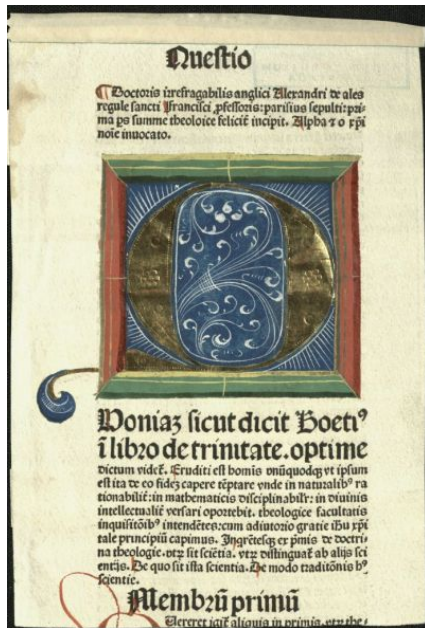 Questio
Doctoris irrefragabilis anglici Alexandri de ales
regule sancti Francisci ꝓfessoris: parisius sepulti: pri-
ma ps summe theoloice feliciť incipit. Alpha ⁊ o xp̄i
noīe inuocato.
Qoniaꝫ sicut dicit Boetiꝰ
ī libro de trinitate. optime
dictum videt̄. Eruditi est homīs vnūquodqꝫ vt ipsum
est ita de eo fideꝫ capere tēptare vnde in naturalibꝰ ra
tionabiliť: in mathematicis disciplinabilr̄: in diuinis
intellectualiť versari oportebit. theologice facultatis
inquisitōibꝰ intendētes: cum adiutorio gratie ih̄u xp̄i
tale principiū capimus. Inqr̄ētesqꝫ ex p̄mis de doctri-
na theologie. vtꝝ sit sciētia. vtꝝ distinguat̄ ab alijs sci
entijs. De quo sit ista scientia. De modo traditōnis hꝰ
scientie.
Membrū primū
aliquis in primis. vtꝝ the-